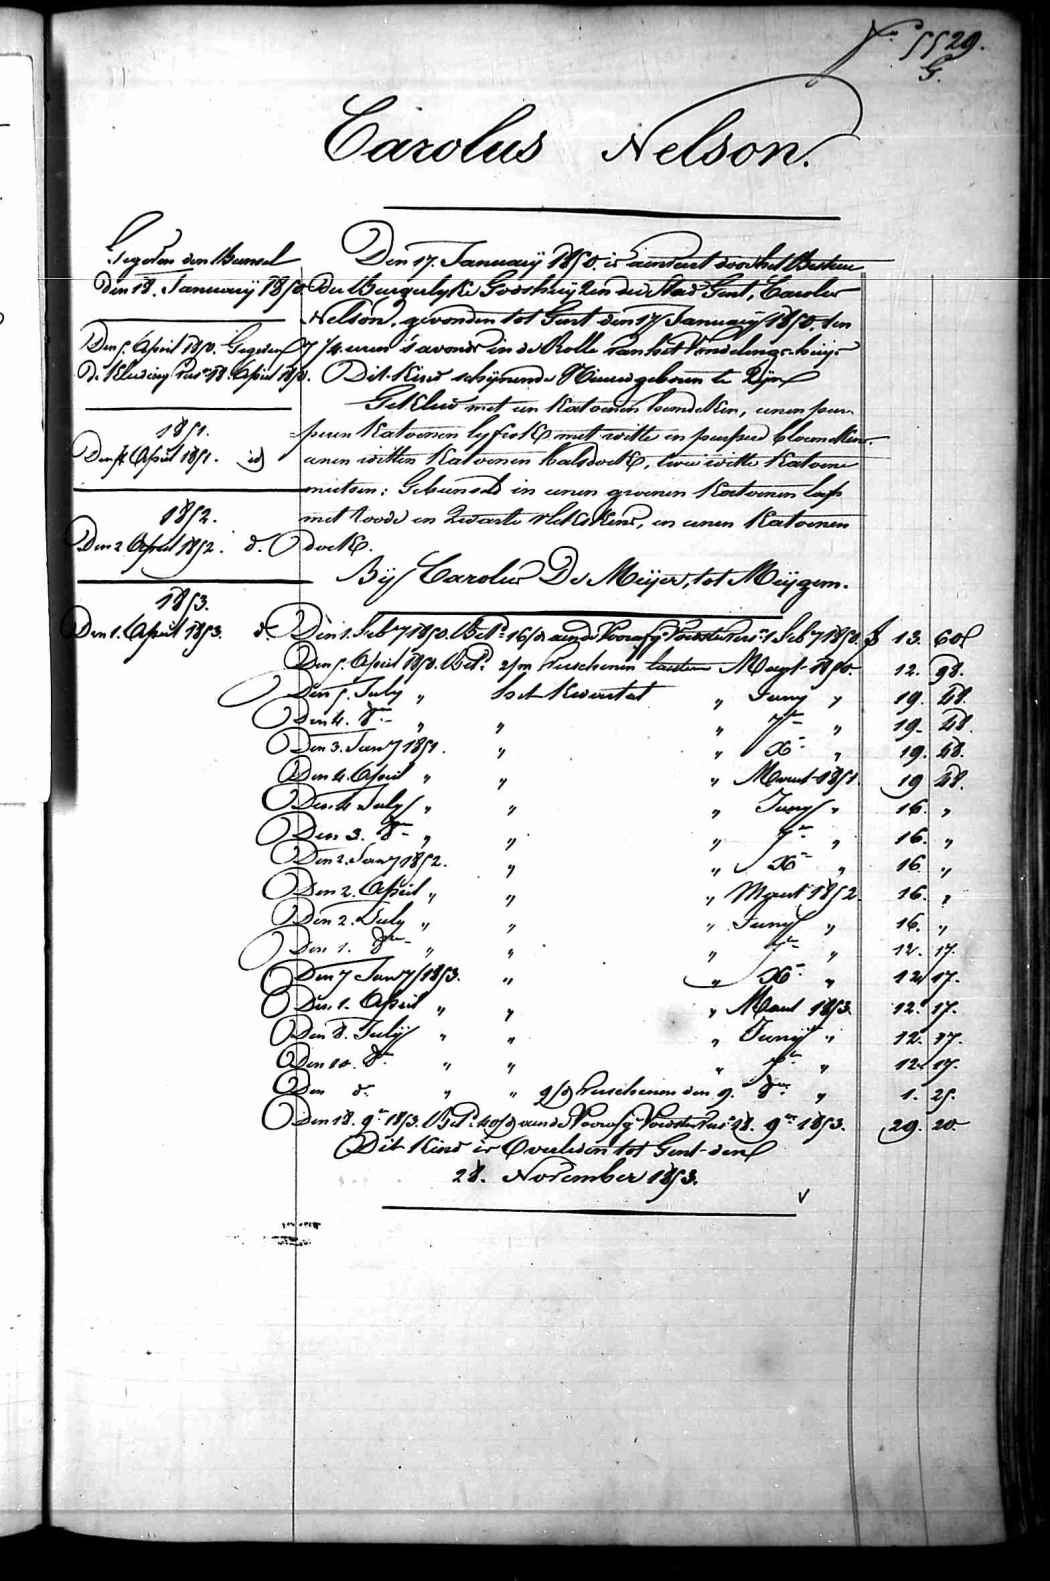 N.o 5529.
G.
Carolus Nelson.
Gegeven den Bunsel
Den 18. January 1850.
Den 5. April 1850. Gegeven
De Kleeding van 18. April 1850.
1851.
Den 4. April 1851. id
1852.
Den 2 April 1852. d.o
1853.
Den 1. April 1853. d.o
Den 17. January 1850. is aenveert door het Bestuer
Der Burgerlyke Godshuyzen der Stad Gent, Carolus
Nelson, gevonden tot Gent den 17 January 1850. ten
7 1/4 uren 's avonds in de Rolle van het Vondelings-huys
Dit Kind schynende Nieuwgeboren te Zyn
Gekleed met een Katoenen hemdeken, eenen pur-
=peren Katoenen lyfrok met witte en purpere bloemekens.
eenen witten Katoenen halsdoek, twee witte Katoene
mutsen: Gebunseld in eenen groenen Katoenen lap
met roode en Zwarte plekskens, en eenen Katoenen
doek.
By Carolus De Meÿer, tot Meÿgem.
Den 1. Feb.y 1850. Bet.d 16/d aen de Voorsz. Voedster 1 Feb.y 1850. f 13. 60
Den 5. April 1850. Bet.d 2/m verschenen Maert 1850. 12. 98.
Den 5. July " het Kwartael " Juny " 19. 48.
Den 4. 8.re " " " 7.re " 19. 48.
Den 3. Jan.y 1851. " " X.re " 19. 48.
Den 4. April " " " Maert 1851. 19 48.
Den 4 July " " " Juny " 16. "
Den 3. 8.re " " " 7.re " 16. "
Den 2. Jan.y 1852. " " X.re " 16 "
Den 2. April " " " Maert 1852. 16. "
Den 2. July " " " Juny " 16. "
Den 1. 8.re " " " 7.re " 12. 17.
Den 7 Jan.y 1853. " " X.re " 12 17.
Den 1. April " " " Maert 1853. 12. 17.
Den 8. July " " " Juny " 12. 17.
Den 10. 8.re " " " 7.re " 12 17.
Den d.o " " 9/d verschenen den 9. 8.re " 1. 25.
Den 18. 9.re 1853. Bet.d 40/d aen de Voorsz. Voedster 18. 9.re 1853. 29. 20.
Dit Kind is Overleden tot Gent den
28. November 1853.